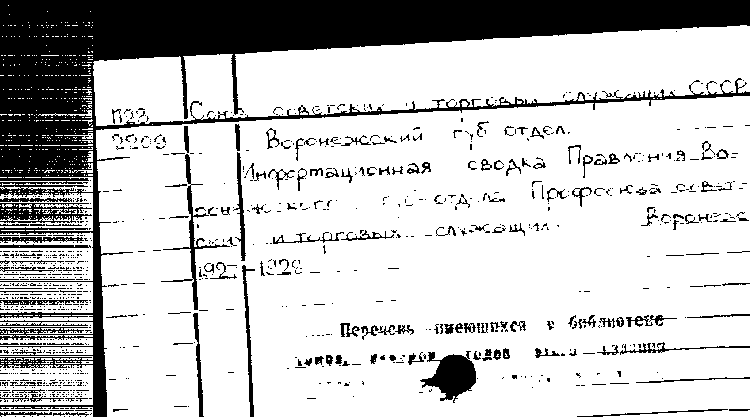 П23 Союз советских и торговых служащих СССР
2209 Воронежский губ отдел.
Информационная сводка Правления Во-
ронежского губ-отдела Профсоюза совет-
ских и торговых служащих. Воронеж
1927-1928
Перечень имеющихся в библиотеке
томов, годов издания